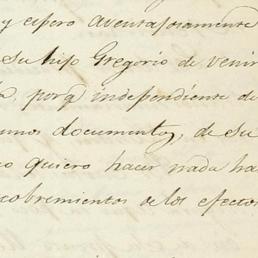 y espero aventajosamente
su hijo Gregorio de venir
porq independiente de
unos documentos, de su
quiero hacer nada ha
cobremientos de los efectos